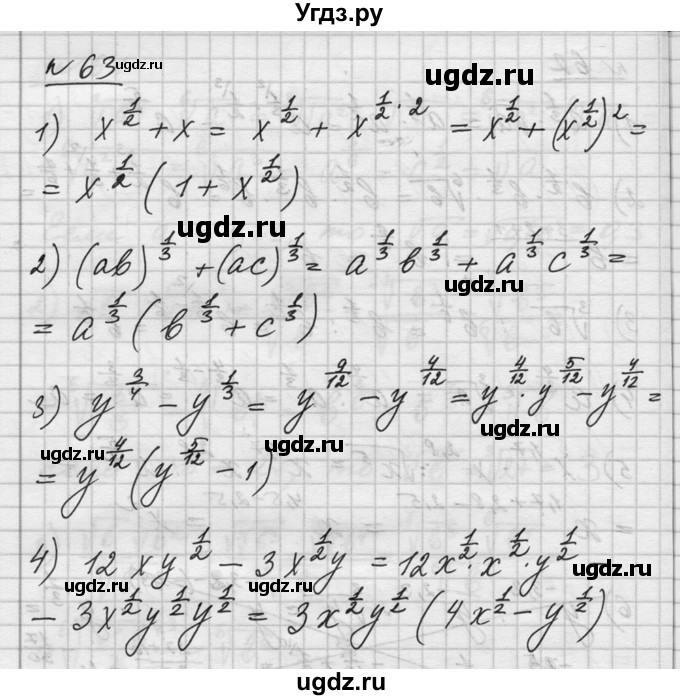 Угдз.ру
№63
ugdz.ru
ugdz.ru
1) x^(1/2) + x = x^(1/2) + x^(1/2 · 2) = x^(1/2) + (x^(1/2))^2 =
= x^(1/2) (1 + x^(1/2))
ugdz.ru
2) (ab)^(1/3) + (ac)^(1/3) = a^(1/3) b^(1/3) + a^(1/3) c^(1/3) =
ugdz.ru
= a^(1/3) (b^(1/3) + c^(1/3))
3) y^(3/4) - y^(1/3) = y^(9/12) - y^(4/12) = y^(4/12) · y^(5/12) - y^(4/12) =
ugdz.ru
ugdz.ru
ugdz.ru
= y^(4/12) (y^(5/12) - 1)
4) 12xy^(1/2) - 3x^(1/2)y = 12x^(1/2) · x^(1/2) · y^(1/2)
ugdz.ru
ugdz.ru
- 3x^(1/2)y^(1/2)y^(1/2) = 3x^(1/2)y^(1/2) (4x^(1/2) - y^(1/2))
ugdz.ru
ugdz.ru